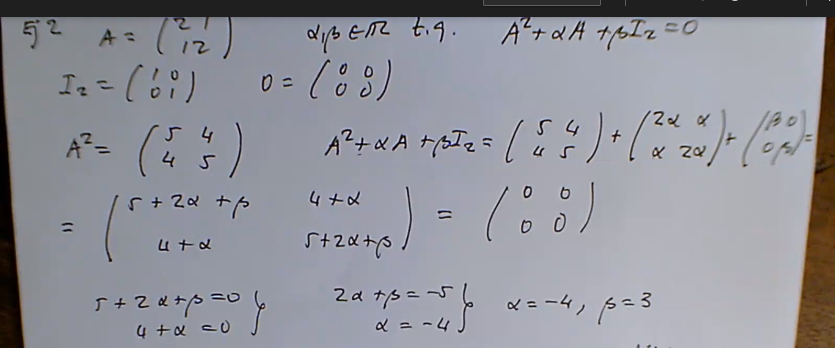 Ej 2 A = (2 1 / 1 2) α, β ∈ ℝ t.q. A² + αA + βI₂ = 0
I₂ = (1 0 / 0 1) 0 = (0 0 / 0 0)
A² = (5 4 / 4 5) A² + αA + βI₂ = (5 4 / 4 5) + (2α α / α 2α) + (β 0 / 0 β) =
= (5 + 2α + β 4 + α / 4 + α 5 + 2α + β) = (0 0 / 0 0)
5 + 2α + β = 0 / 4 + α = 0 } 2α + β = -5 / α = -4 } α = -4, β = 3